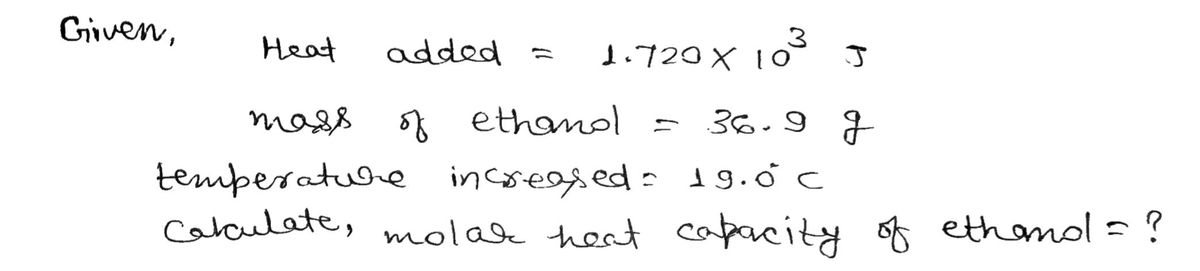 Given,
Heat added = 1.720 X 10³ J
mass of ethanol = 36.9 g
temperature increased = 19.0° C
Calculate, molar heat capacity of ethanol = ?